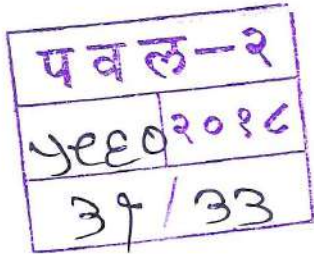 पवल-२
५९६० २०१८
३१/३३